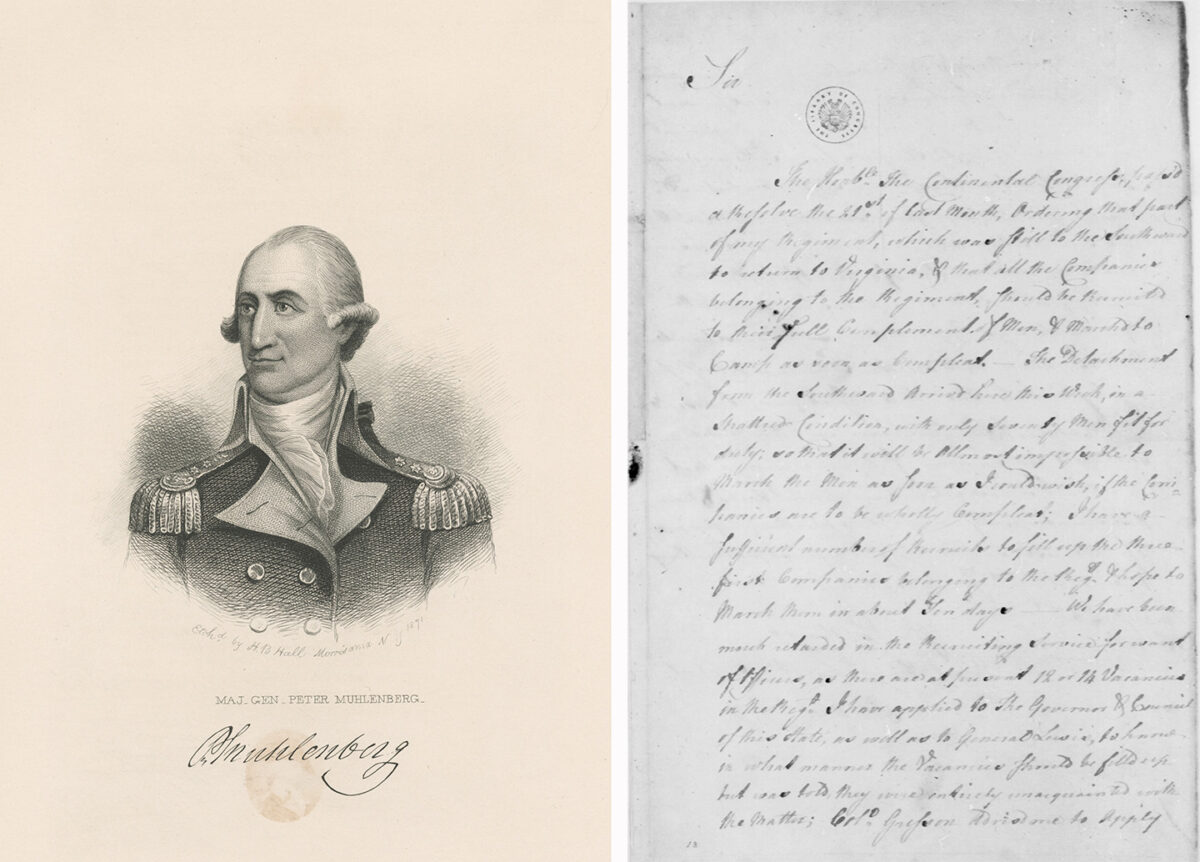 Etch'd by H B Hall Morrisania N Y 1871
MAJ. GEN. PETER MUHLENBERG.
P. Muhlenberg
Sir
THE LIBRARY OF CONGRESS
The Honble. The Continental Congress, pass'd
a Resolve the 21st. of last Month, Ordering that part
of my Regiment, which was still to the Southward
to return to Virginia, & that all the Companies
belonging to the Regiment, should be Recruited
to their full Complement of Men, & March'd to
Camp as soon as Compleat. — The Detachment
from the Southward Arrived here this Week, in a
Shattred Condition, with only Seventy Men fit for
duty; so that it will be Allmost impossible to
March the Men as soon as I could wish, if the Com-
panies are to be wholly Compleat; I have a
sufficient number of Recruits to fill up the three
first Companies belonging to the Regt. & hope to
March them in about Ten days — We have been
much retarded in the Recruiting Service for want
of Officers, as there are at present 12 or 14 Vacancies
in the Regt. I have applied to The Governor & Council
of this State, as well as to General Lewis, to know
in what manner the Vacancies should be filld up
but was told, they were intirely unacquainted with
the Matter; Colo. Grayson Advised me to Apply